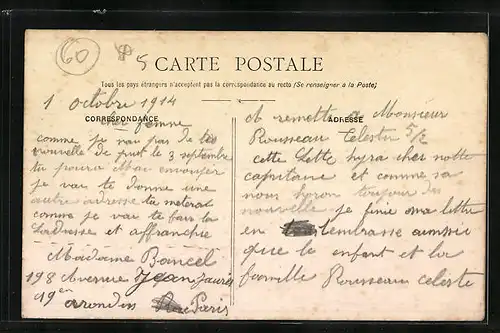 60
5
CARTE POSTALE
Tous les pays étrangers n'acceptent pas la correspondance au recto (Se renseigner à la Poste)
CORRESPONDANCE
1 octobre 1914
cher femme
comme je nau pas de tes
nouvelle de puet le 3 septembre
tu poura Mau envouyer
je var te donne une
autre adresse tu meteras
comme je var te fair la
Ladresse et affranchie
Madame Bancel
198 Avenue Jean Jaurès
19 en arondis Paris
ADRESSE
A remettre a Monsieur
Rousseau Celestin
cette Lette hyra cher notte
capitaine et comme sa
nous horon toujour des
nouvelle je finie ma lettre
en tembrasse aumsie
que le enfant et la
famille Rousseau celeste